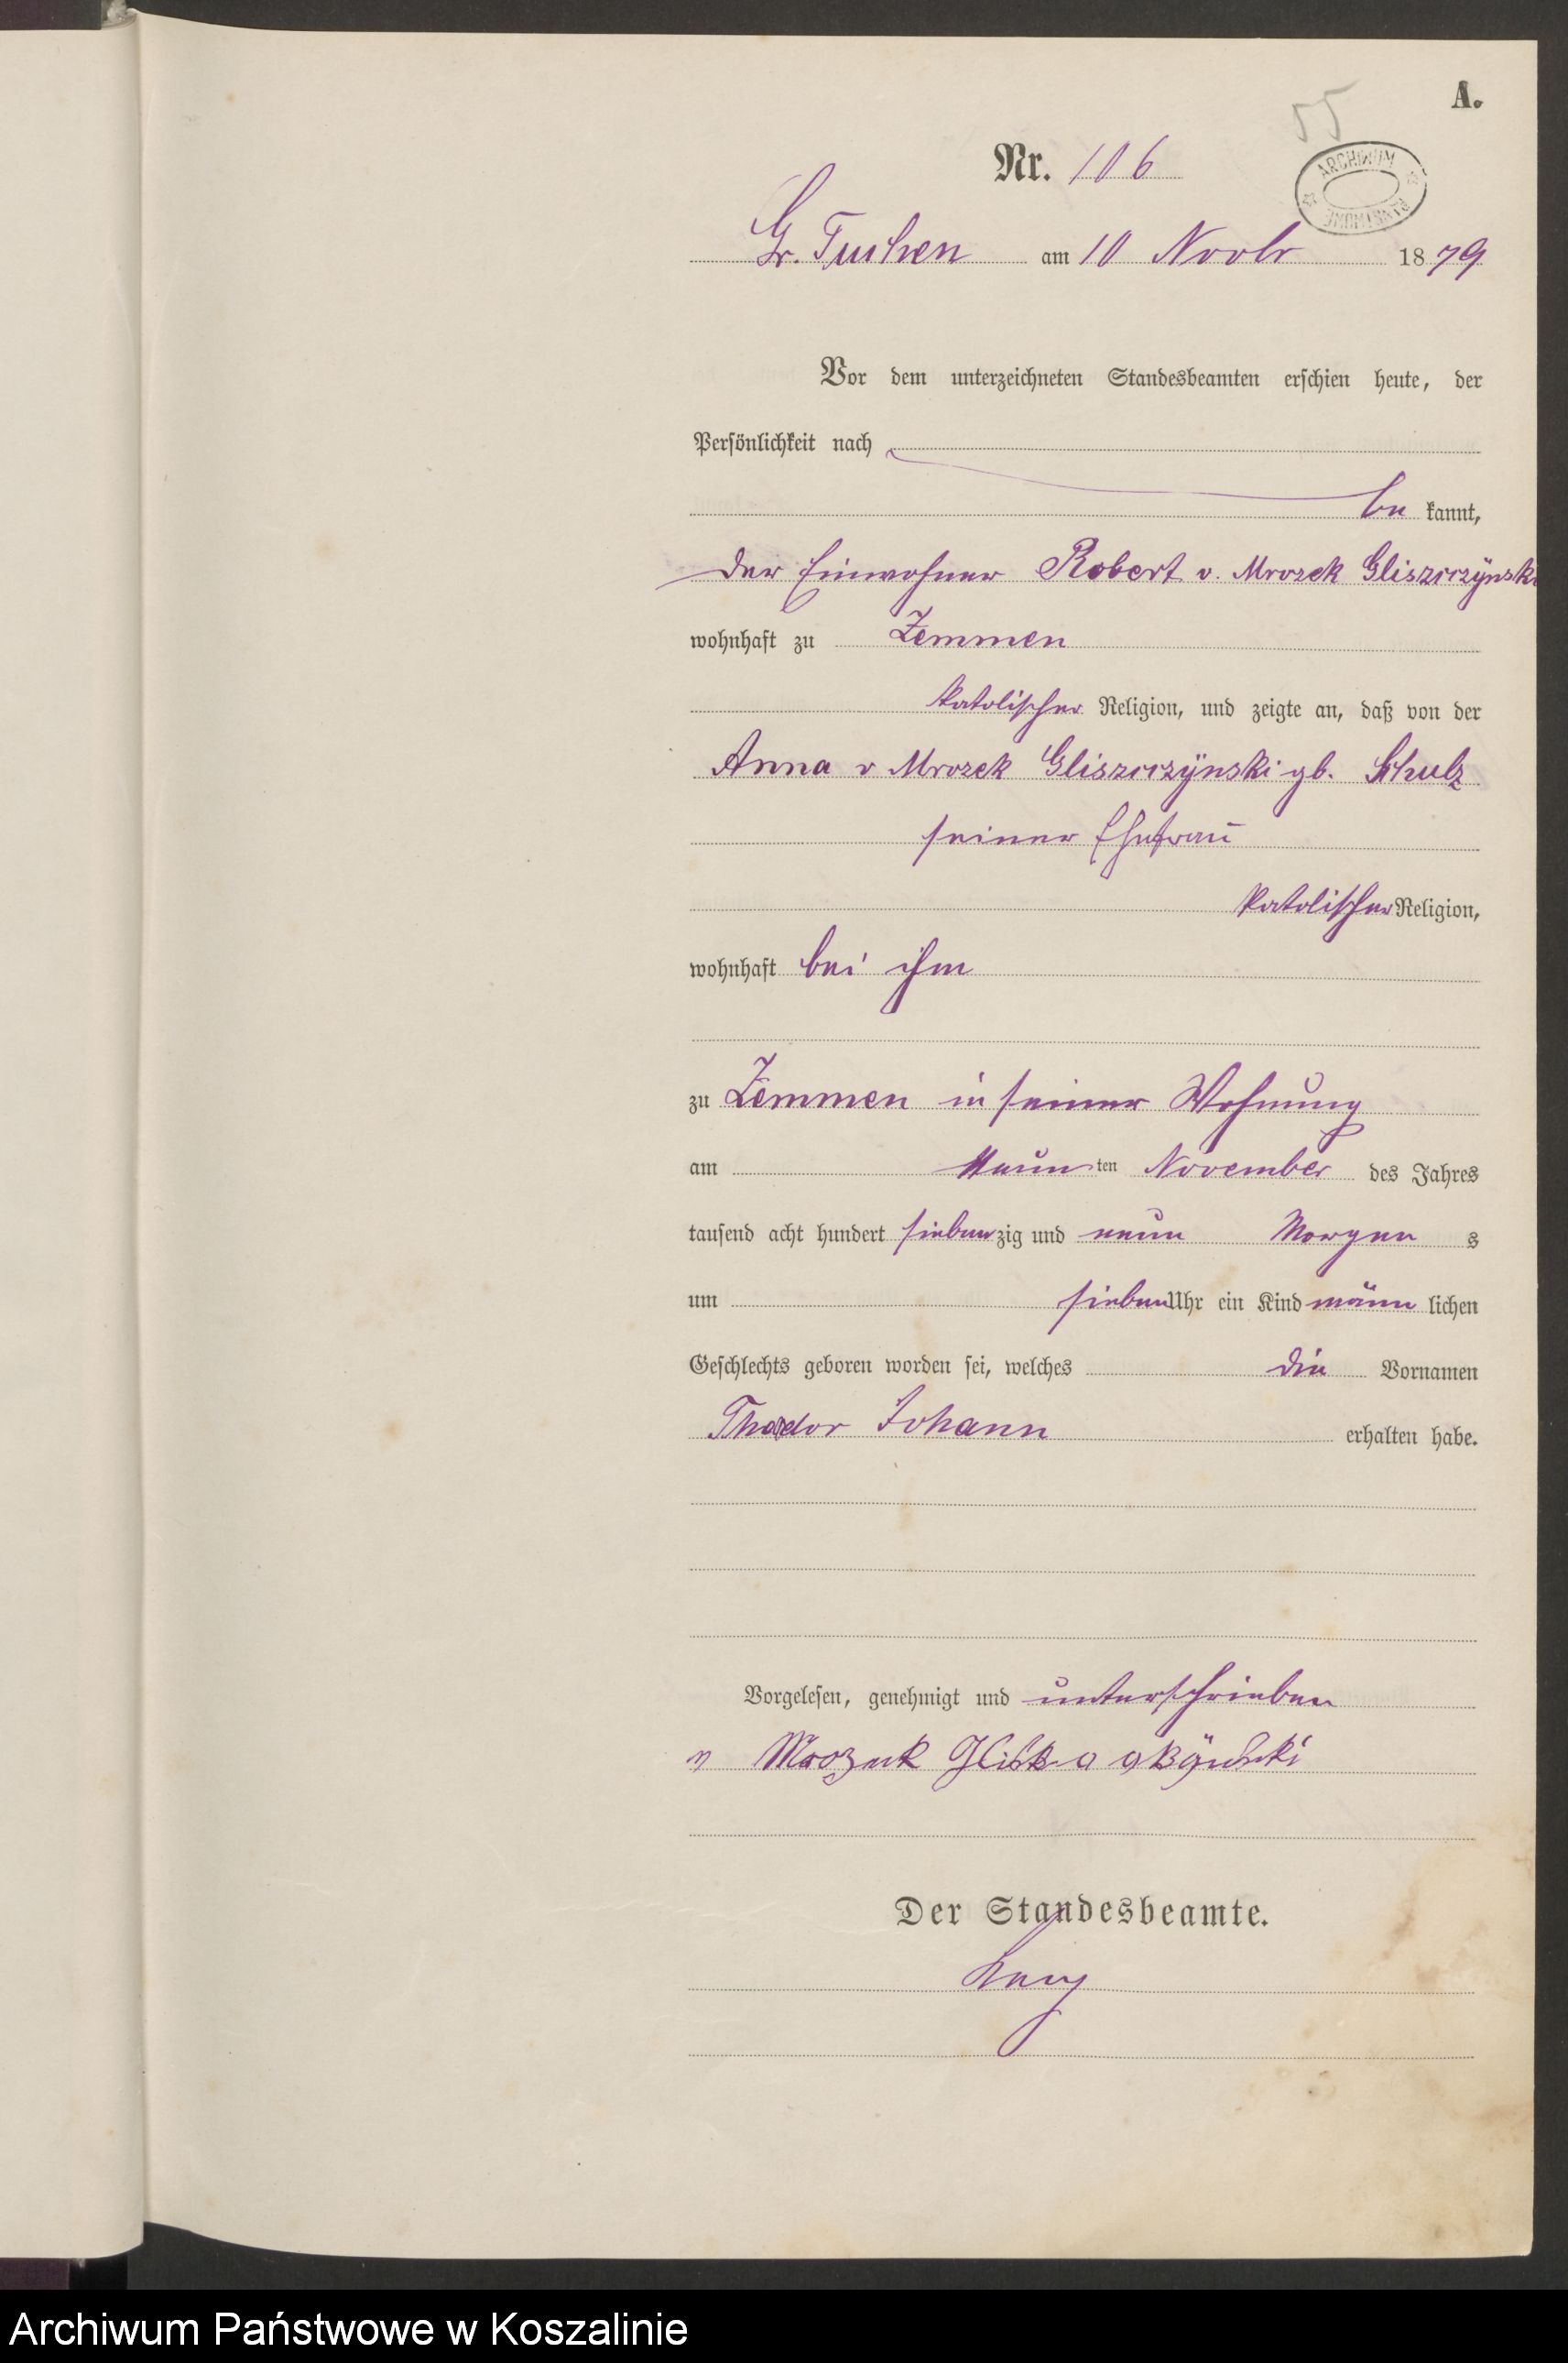 A.
55
Nr. 106
ARCHIWUM PAŃSTWOWE
Gr. Tuchen am 10 Novbr 1879
Vor dem unterzeichneten Standesbeamten erschien heute, der
Persönlichkeit nach
be kannt,
der Einwohner Robert v. Mrozek Gliszczÿnski
wohnhaft zu Zemmen
katolischer Religion, und zeigte an, daß von der
Anna v Mrozek Gliszczÿnski gb. Schulz
seiner Ehefrau
katolischer Religion,
wohnhaft bei ihm
zu Zemmen in seiner Wohnung
am Neun ten November des Jahres
tausend acht hundert sieben zig und neun Morgen s
um sieben Uhr ein Kind männ lichen
Geschlechts geboren worden sei, welches die Vornamen
Theodor Johann erhalten habe.
Vorgelesen, genehmigt und unterschrieben
v Mrozek
Der Standesbeamte.
Archiwum Państwowe w Koszalinie